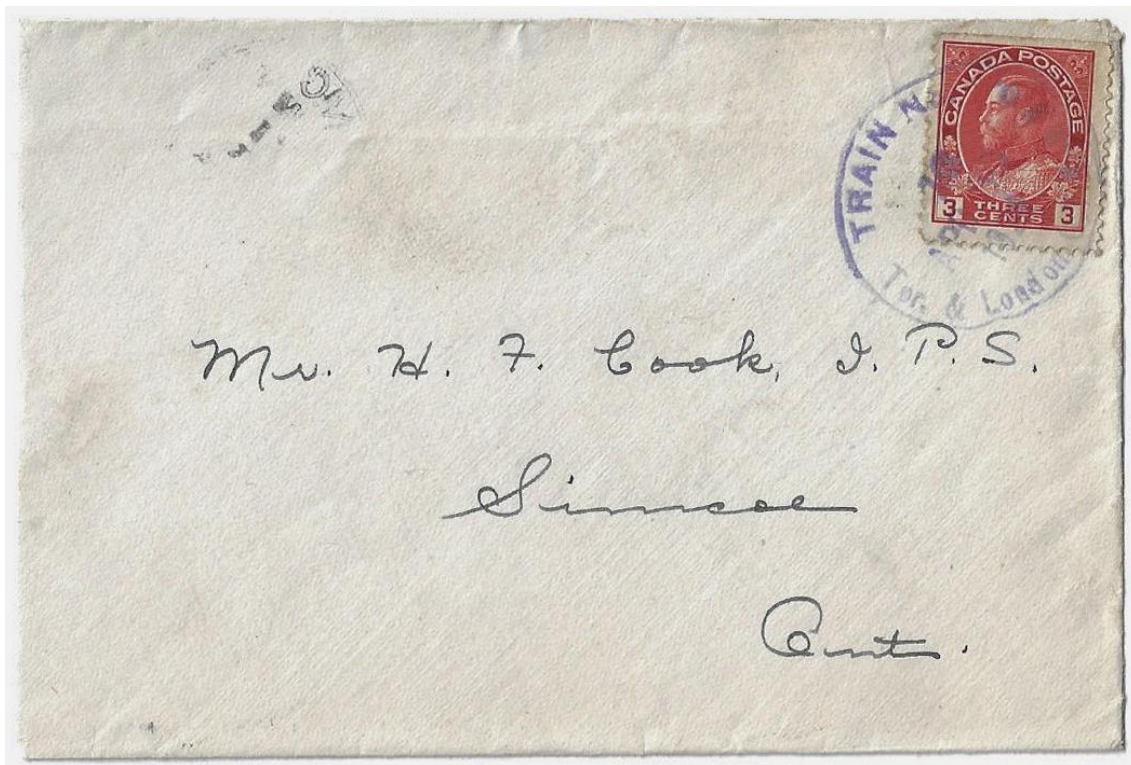 CANADA POSTAGE
3 THREE CENTS 3
TRAIN
Tor. & London
Mr. H. F. Cook, I. P. S.
Simcoe
Ont.